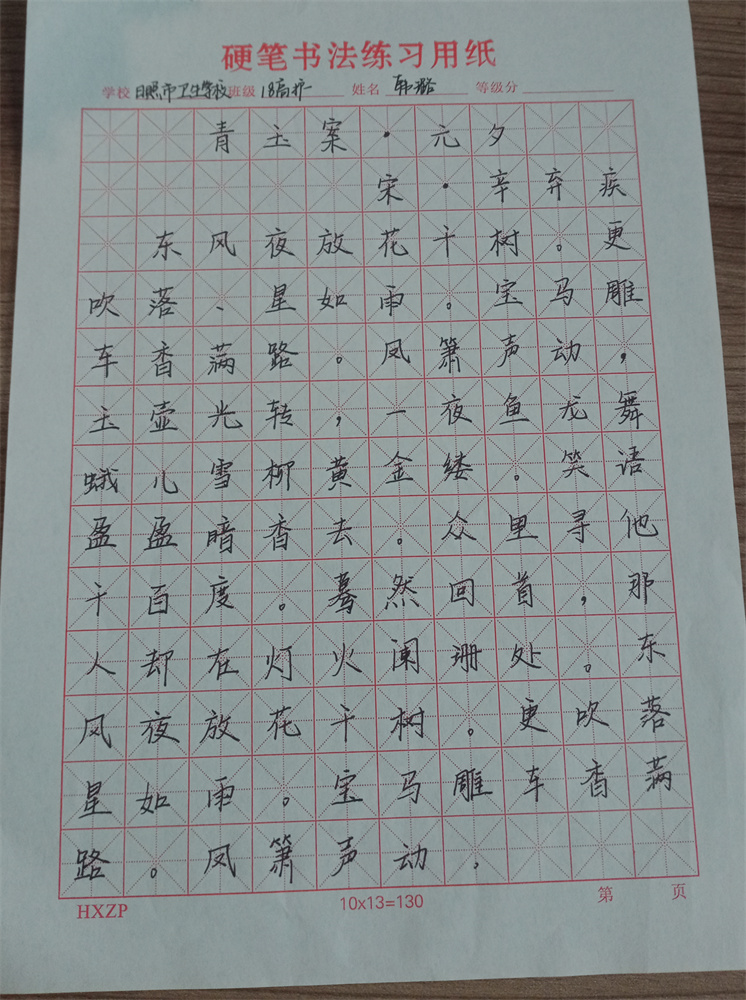 硬笔书法练习用纸
学校 日照市卫生学校 班级 18高护 姓名 等级分
青玉案·元夕
宋·辛弃疾
东风夜放花千树。更
吹落、星如雨。宝马雕
车香满路。凤箫声动，
玉壶光转，一夜鱼龙舞
蛾儿雪柳黄金缕。笑语
盈盈暗香去。众里寻他
千百度。蓦然回首，那
人却在灯火阑珊处。东
风夜放花千树。更吹落
星如雨。宝马雕车香满
路。凤箫声动，
HXZP 10x13=130 第 页